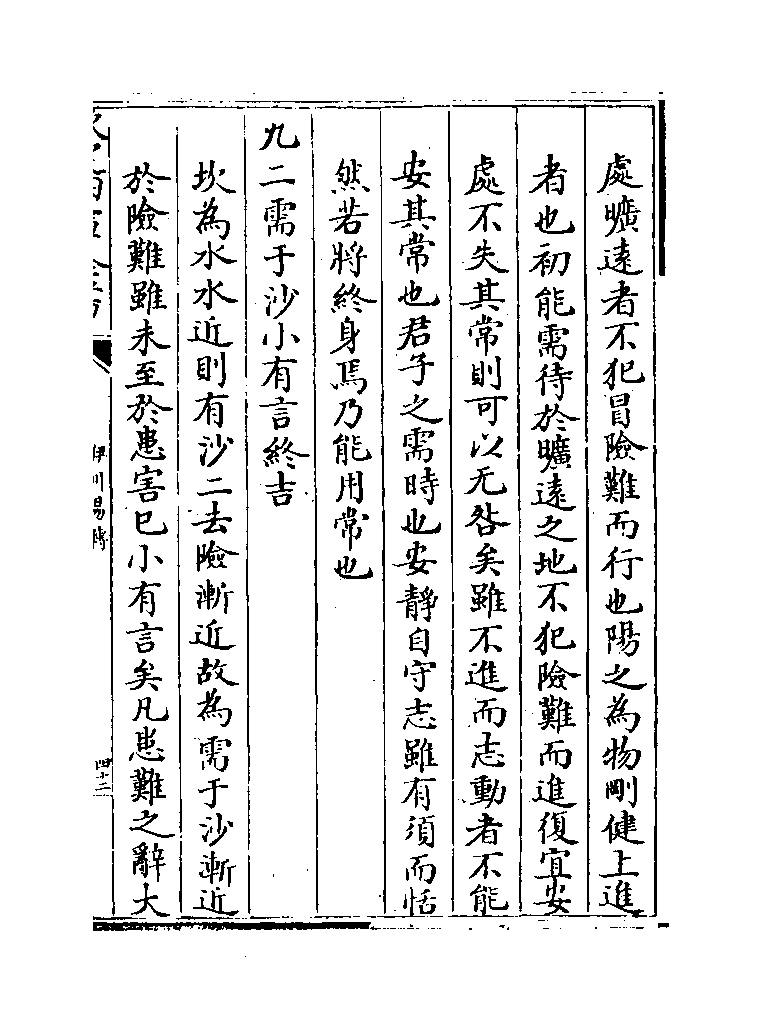 處曠遠者不犯冒險難而行也陽之為物剛健上進
者也初能需待於曠遠之地不犯險難而進復宜安
處不失其常則可以无咎矣雖不進而志動者不能
安其常也君子之需時也安靜自守志雖有須而恬
然若將終身焉乃能用常也
九二需于沙小有言終吉
坎為水水近則有沙二去險漸近故為需于沙漸近
於險難雖未至於患害已小有言矣凡患難之辭大
伊川易傳
四十三